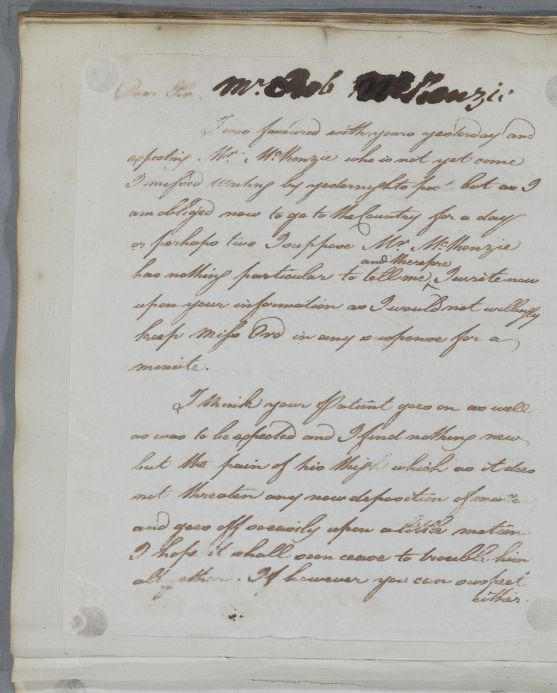 Dear Sir. Mr Rob McKenzie
I was favoured with yours yesterday and
expecting Mr. McKenzie who is not yet come
I missed writing by yesternights post but as I
am obliged now to go to the Country for a day
or perhaps two I suppose Mr. McKenzie
and therefore
has nothing particular to tell me ^ I write now
upon your information as I would not willingly
keep Miss Ord in any suspense for a
minute.
I think your Patient goes on as well
as was to be expected and I find nothing new
but the pain of his thigh which as it does
not threaten any new deposition of matter
and goes off so easily upon a little motion
I hope it shall soon cease to trouble him
altogether. If however you can suspect
either